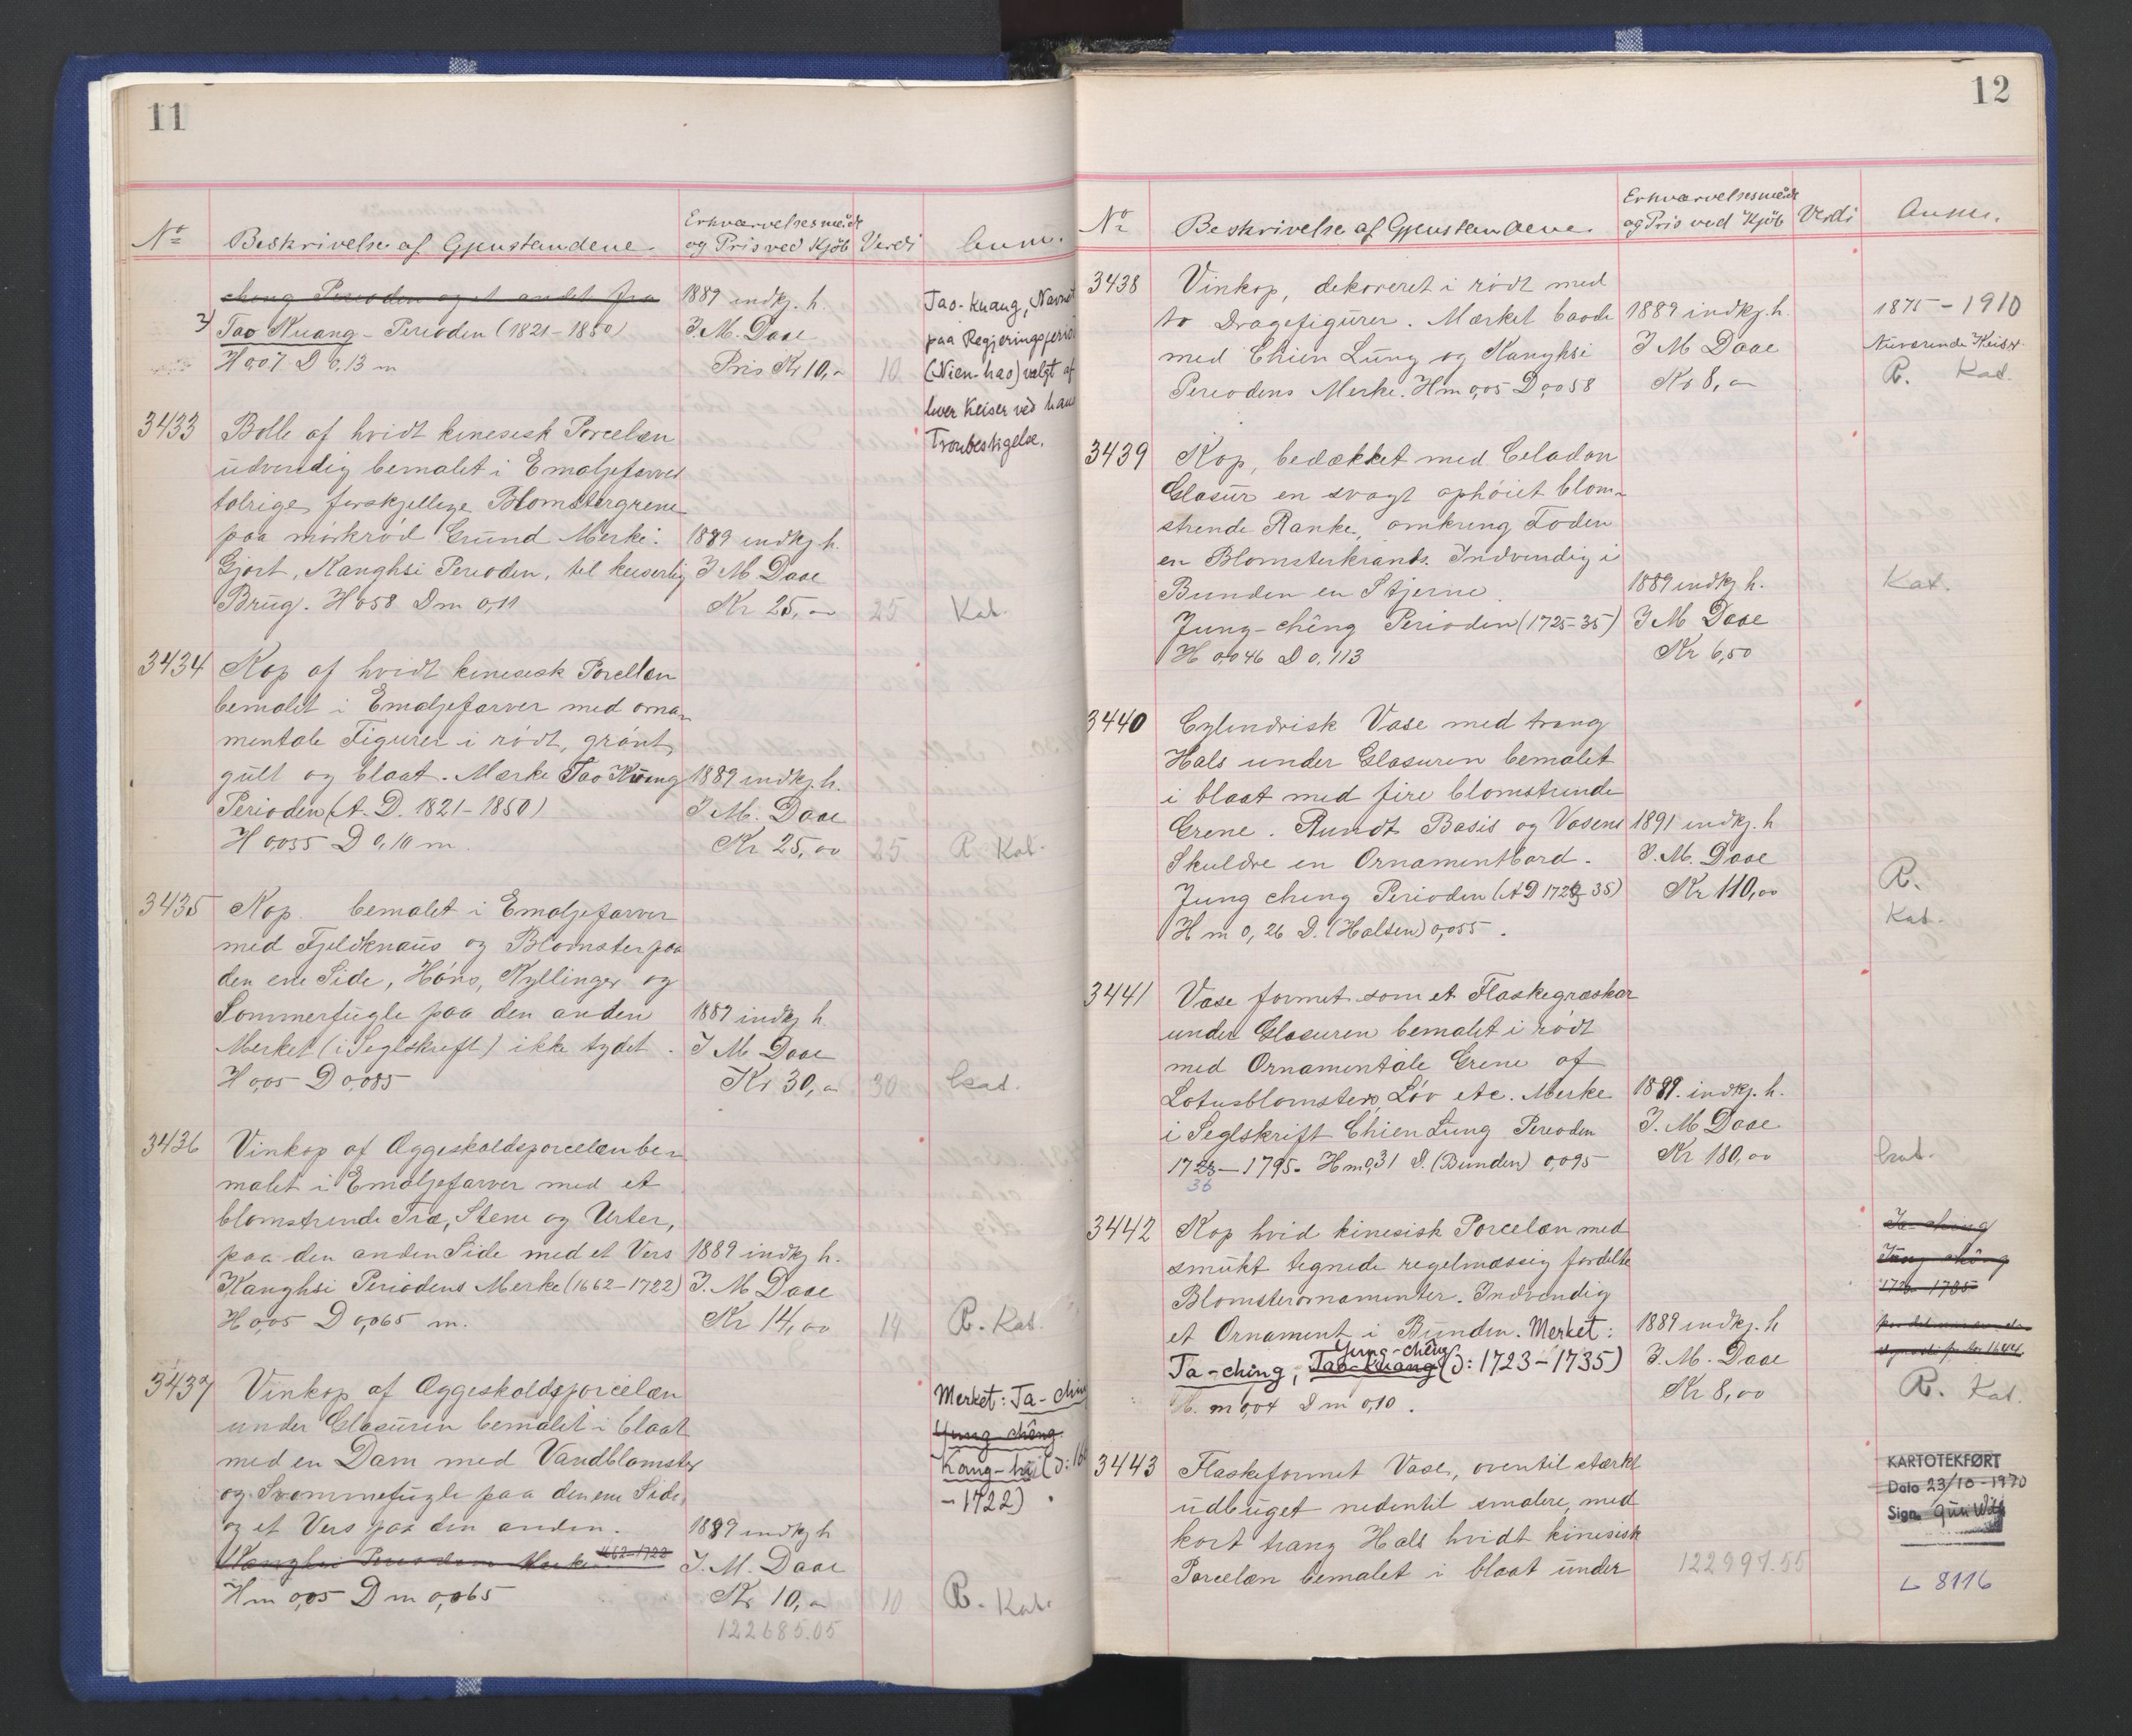 11
No
Beskrivelse af Gjenstandene.
Erhvervelsesmåde
og Pris ved Kjöb
Verdi
Anm.
cheng Perioden og et andet fra
Tao Kuang - Perioden (1821-1850)
H 0,07 D 0,13 m
1889 indkj. h.
J. M. Daae
Pris Kr 10,
10
Tao-kuang, Navnet
paa Regjeringsperio
(Nien-hao) valgt af
hver Keiser ved hans
Tronbestigelse.
3433
Bolle af hvidt kinesisk Porcelæn
udvendig bemalet i Emaljefarver
talrige forskjellige Blomstergrene
paa mörkröd Grund Merke:
Gjort, Kanghsi Perioden, til keiserlig
Brug. H 058 Dm 0,11
1889 indkj h.
J M Daae
Kr 25,
25
Kat.
3434
Kop af hvidt kinesisk Porcellæn
bemalet i Emaljefarver med orna-
mentale Figurer i rödt, grönt,
gult og blaat. Mærke Tao Kuang
Perioden (A. D. 1821-1850)
H 0,055 D 0,10 m.
1889 indkj. h.
J M. Daae
Kr 25,00
25
R Kat.
3435
Kop bemalet i Emaljefarver
med Fjeldknaus og Blomster paa
den ene Side, Höns, Kyllinger og
Sommerfugle paa den anden
Merket (i Seglskrift) ikke tydet.
H 0,05 D 0,085
1889 indkj h.
J M Daae
Kr 30,
30
Kat.
3436
Vinkop af Æggeskaldsporcelæn be-
malet i Emaljefarver med et
blomstrende Træ, Stene og Urter,
paa den anden Side med et Vers
Kanghsi Periodens Merke (1662-1722)
H 0,05 D 0,065 m.
1889 indkj h.
J. M Daae
Kr 14,00
14
R. Kat.
3437
Vinkop af Æggeskaldsporcelæn
under Glasuren bemalet i blaat
med en Dam med Vandblomster
og Svømmefugle paa den ene Side,
og et Vers paa den anden.
Kanghsi Periodens Merke 1662-1722
H m 0,05 D m 0,065
1889 indkj h
J. M. Daae
Kr 10,
122685.05
10
Merket: Ta-ching
Yung chêng
Kang-hsi (ɔ: 16
-1722)
R. Kat.
12
No
Beskrivelse af Gjenstandene
Erhvervelsesmåde
og Pris ved Kjöb
Verdi
Anm.
3438
Vinkop, dekoreret i rödt med
to Dragefigurer. Mærket baade
med Chien Lung og Kanghsi
Periodens Merke. H m 0,05 D 0,058
1889 indkj. h.
J M Daae
Kr 8,
1875-1910
Nuværende Keiser
R. Kat.
3439
Kop, bedækket med Celadon
Glasur en svagt ophöiet blom-
strende Ranke, omkring Foden
en Blomsterkrands. Indvendig i
Bunden en Stjerne.
Jung-chêng Perioden (1725-35)
H 0,046 D 0,113
1889 indkj h.
J M Daae
Kr 6,50
Kat.
3440
Cylindrisk Vase med trang
Hals under Glasuren bemalet
i blaat med fire blomstrende
Grene. Rundt Basis og Vasens
Skuldre en Ornamentbord.
Jung cheng Perioden (AD 1723-35)
H m 0,26 D. (Halsen) 0,055.
1891 indkj. h
J. M. Daae
Kr 110,00
R.
Kat.
3441
Vase formet som et Flaskegræskar
under Glasuren bemalet i rödt
med Ornamentale Grene af
Lotusblomster, Löv etc. Merke
i Seglskrift Chien Lung Perioden
1723-1795. H m 0,31 D. (Bunden) 0,095
36
1889. indkj. h.
J. M Daae
Kr 180,00
Kat.
3442
Kop hvid kinesisk Porcelæn med
smukt tegnede regelmæssig fordelte
Blomsterornamenter. Indvendig
et Ornament i Bunden. Merket:
Yung-chêng
Ta-ching, Tao-kuang (ɔ: 1723-1735)
H. m 0,04 D m 0,10.
1889 indkj. h
J. M. Daae
Kr 8,00
Ta-ching
Yung chêng
1723-1735
R. Kat.
3443
Flaskeformet Vase, oventil stærkt
udbuget nedentil smalere, med
kort trang Hals hvidt kinesisk
Porcelæn bemalet i blaat under
122997.55
KARTOTEKFØRT
Dato 23/10-1970
Sign.
L 8116